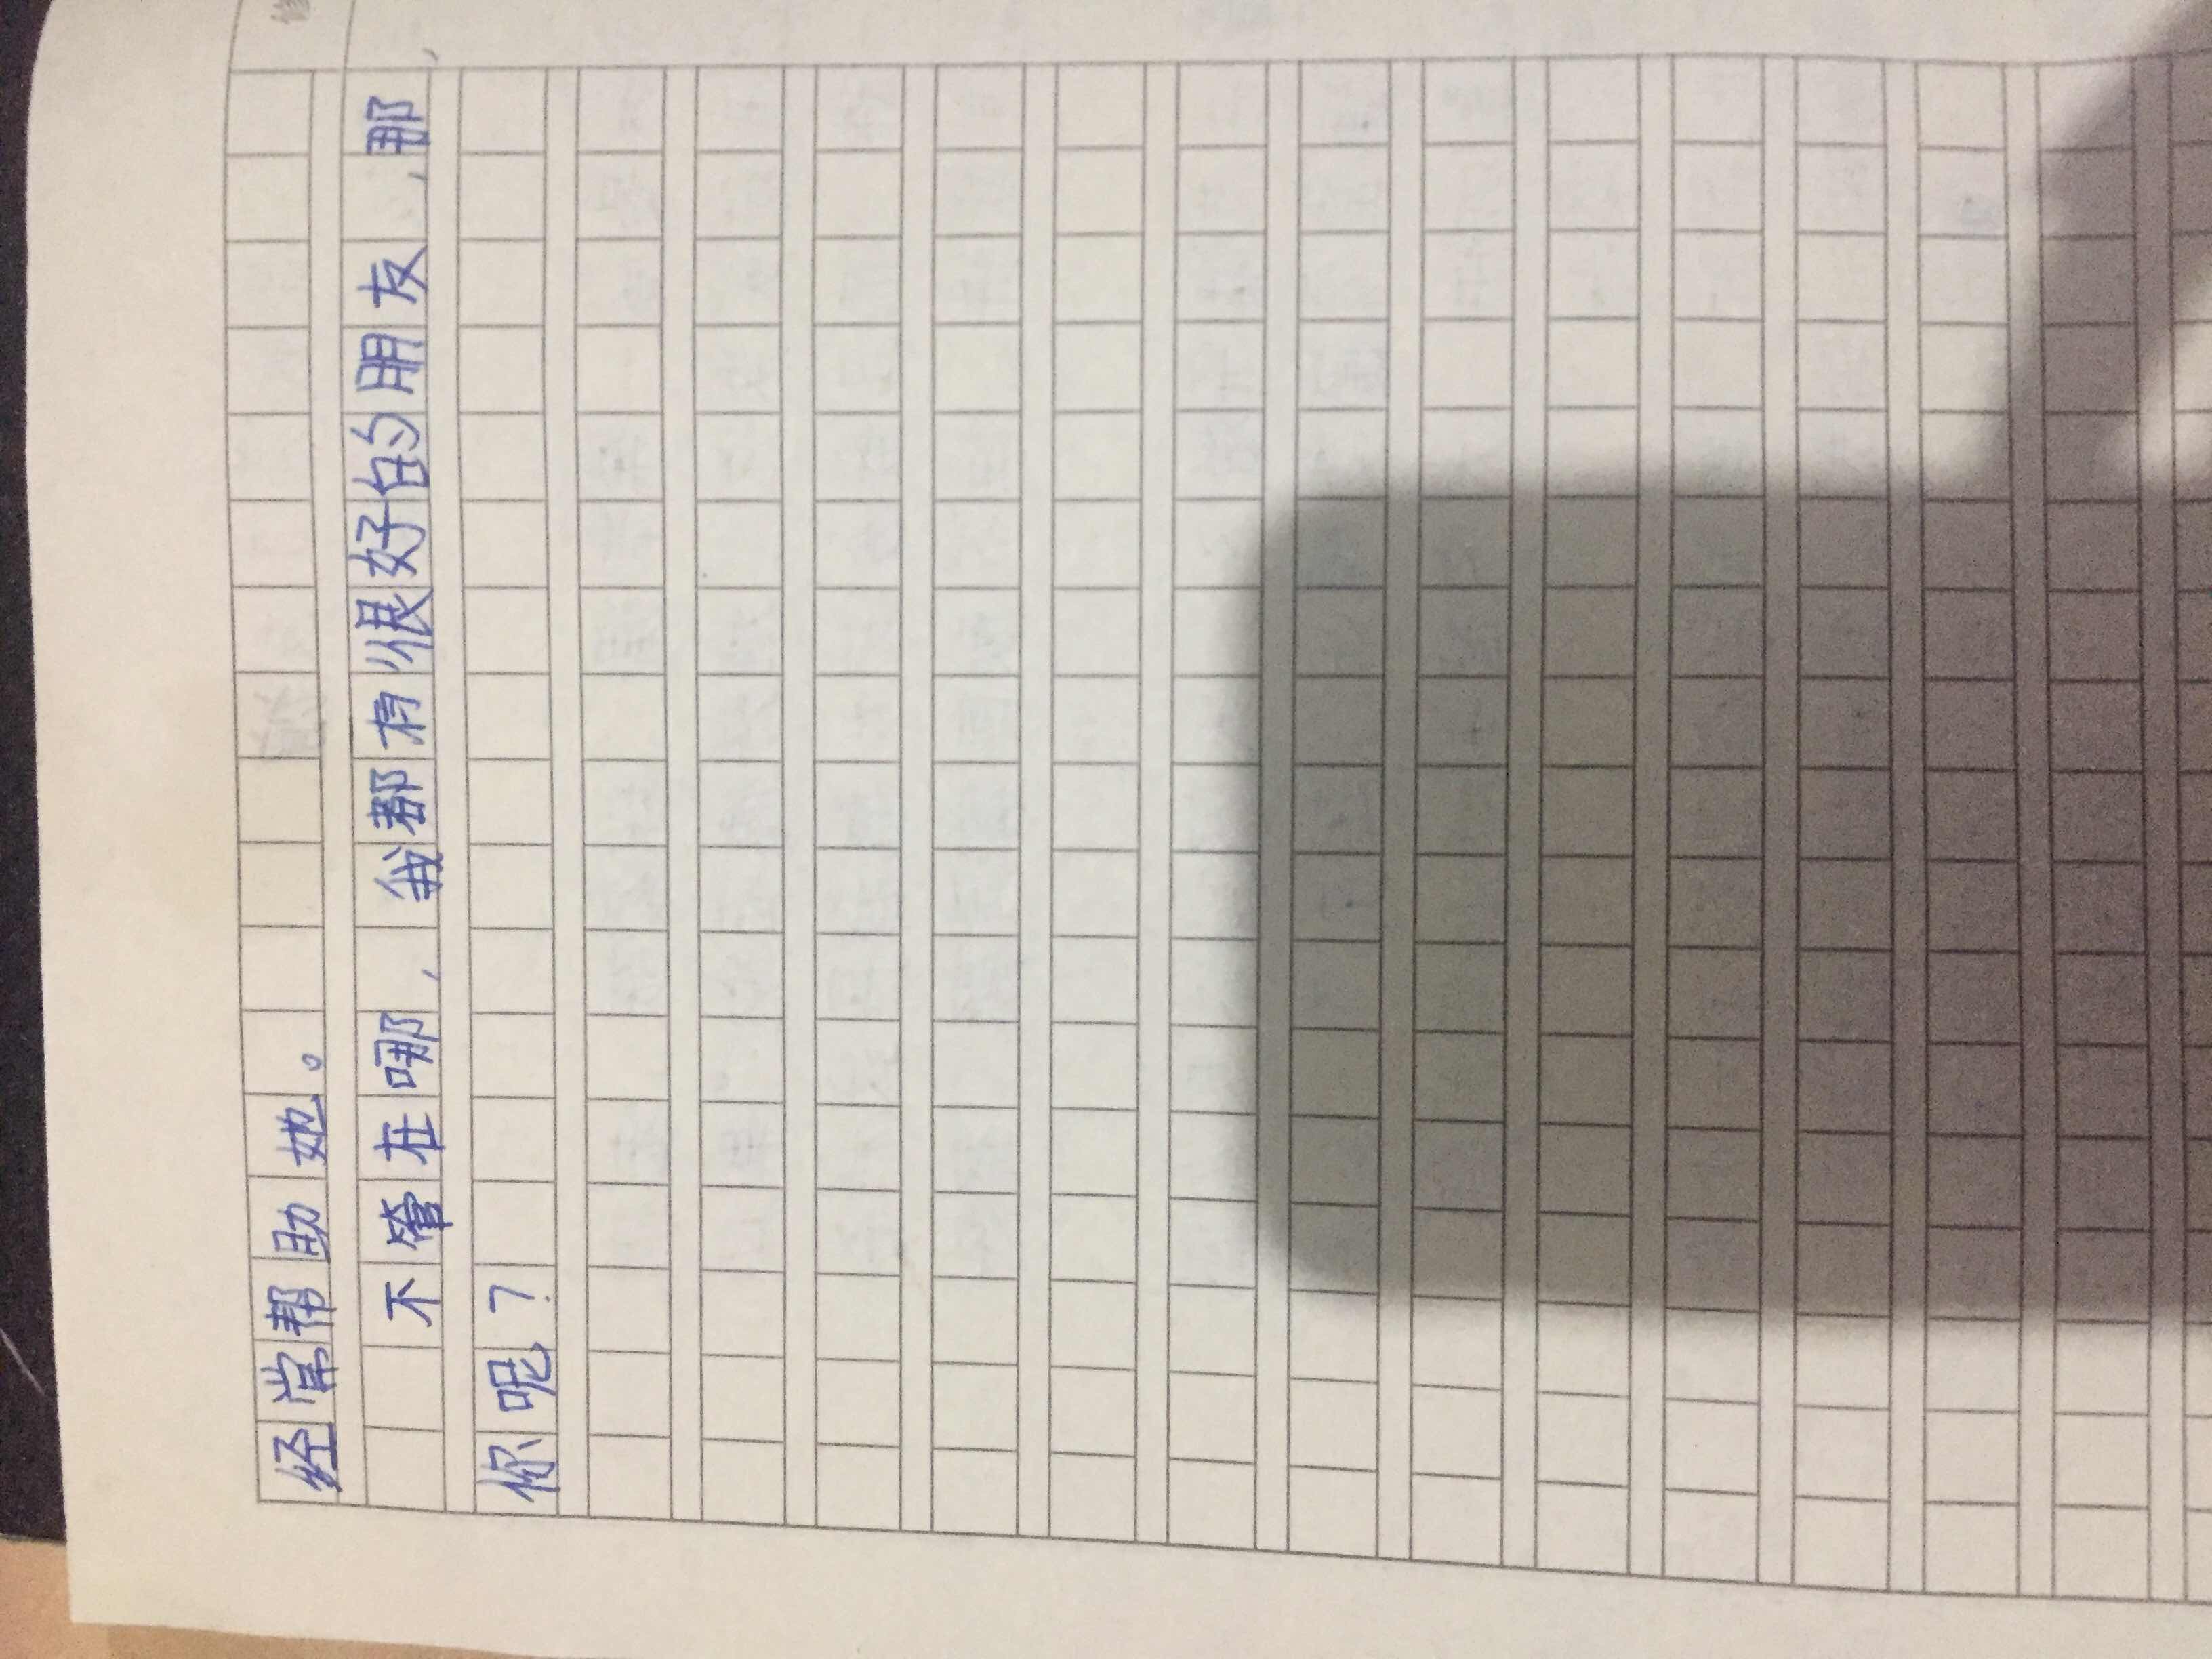 经常帮助她。
不管在哪，我都有很好的朋友，那，
你呢？